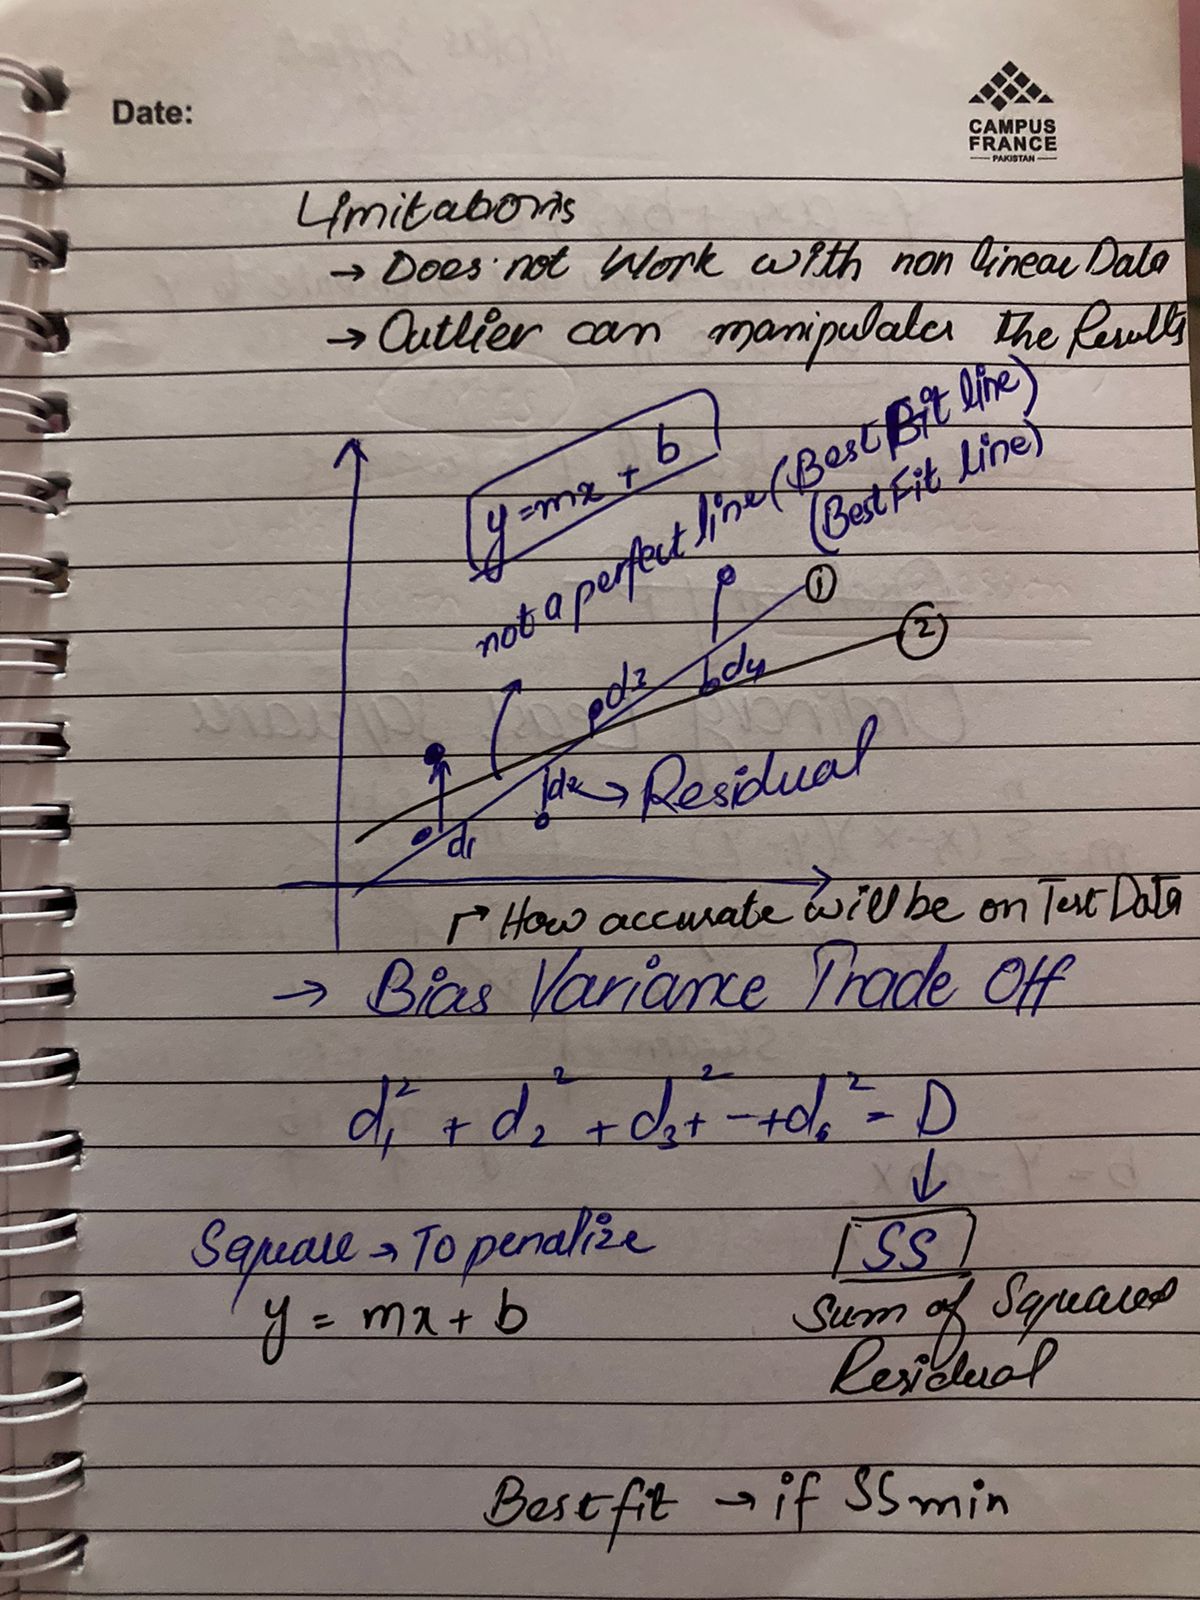 Date:
CAMPUS
FRANCE
PAKISTAN
Limitations
→ Does not Work with non linear Data
→ Outlier can manipulater the Results
y = mx + b
not a perfect line (Best Bit line)
(Best Fit line)
1
2
d3
d4
d2 → Residual
d1
↱ How accurate will be on Test Data
→ Bias Variance Trade Off
d₁² + d₂² + d₃² + - + d₆² = D
↓
Square → To penalize
SS
y = mx + b
Sum of Squares
Residual
Best fit → if SS min